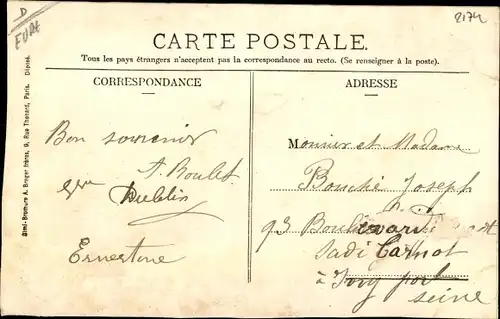 D
EURE
2174
CARTE POSTALE.
Tous les pays étrangers n'acceptent pas la correspondance au recto. (Se renseigner à la poste).
CORRESPONDANCE
ADRESSE
Simi-Bromure A. Breger frères, 9, Rue Thénard, Paris. Déposé.
Bon souvenir
A. Boulet
Dublin
Ernestine
Monsieur et Madame
Bouché Joseph
93 Boulevard
Sadi Carnot
à Ivry port
seine